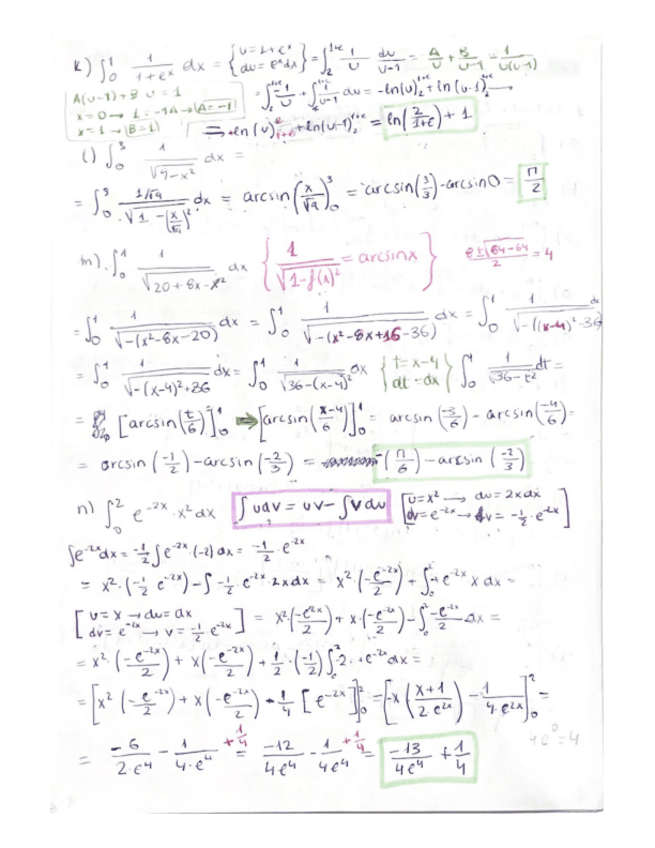 k) ∫₀¹ 1/(1+eˣ) dx = {u=1+eˣ du=eˣdx} = ∫₂¹⁺ᵉ 1/u du/(u-1) = A/u + B/(u-1) = 1/(u(u-1))
A(u-1)+B u = 1
x=0 → 1=-1A → (A=-1)
x=1 → (B=1)
= ∫₂¹⁺ᵉ -1/u + ∫₂¹⁺ᵉ 1/(u-1) du = -ln(u)₂¹⁺ᵉ + ln(u-1)₂¹⁺ᵉ →
⇒ +ln(u)²₁₊ₑ + ln(u-1)₂¹⁺ᵉ = ln(2/(1+e)) + 1
l) ∫₀³ 1/√(9-x²) dx =
= ∫₀³ (1/√9)/√(1-(x/√9)²) dx = arcsin(x/√9)₀³ = arcsin(3/3) - arcsin 0 = π/2
m) ∫₀¹ 1/√(20+8x-x²) dx {1/√(1-f(x)²) = arcsinx} (8±√(64-64))/2 = 4
= ∫₀¹ 1/√(-(x²-8x-20)) dx = ∫₀¹ 1/√(-(x²-8x+16-36)) dx = ∫₀¹ 1/√(-((x-4)²-36) dx
= ∫₀¹ 1/√(-(x-4)²+36) dx = ∫₀¹ 1/√(36-(x-4)²) dx {t=x-4 dt=dx} ∫₀¹ 1/√(36-t²) dt =
= [arcsin(t/6)]₀¹ ⇒ [arcsin((x-4)/6)]₀¹ = arcsin(-3/6) - arcsin(-4/6) =
= arcsin(-1/2) - arcsin(-2/3) = -(π/6) - arcsin(-2/3)
n) ∫₀² e⁻²ˣ·x² dx ∫udv = uv - ∫vdu [u=x² → du=2xdx dv=e⁻²ˣ → v=-1/2·e⁻²ˣ]
∫e⁻²ˣdx = -1/2 ∫e⁻²ˣ·(-2)dx = -1/2·e⁻²ˣ
= x²·(-1/2 e⁻²ˣ) - ∫-1/2 e⁻²ˣ·2xdx = x²·(-e⁻²ˣ/2) + ∫₀² e⁻²ˣ x dx =
[u=x → du=dx dv=e⁻²ˣ → v=-1/2·e⁻²ˣ] = x²·(-e⁻²ˣ/2) + x·(-e⁻²ˣ/2) - ∫₀² -e⁻²ˣ/2 dx =
= x²·(-e⁻²ˣ/2) + x(-e⁻²ˣ/2) + 1/2·(-1/2) ∫₀² -2·e⁻²ˣdx =
= [x²(-e⁻²ˣ/2) + x(-e⁻²ˣ/2) - 1/4 [e⁻²ˣ]]₀² = [-x((x+1)/(2·e²ˣ)) - 1/(4·e²ˣ)]₀² =
4e⁰=4
= -6/(2·e⁴) - 1/(4·e⁴) + 1/4 = -12/(4e⁴) - 1/(4e⁴) + 1/4 = -13/(4e⁴) + 1/4